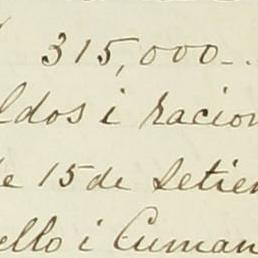 315,000_..
ldos i racion
e 15 de Setiem
ello i Cuman